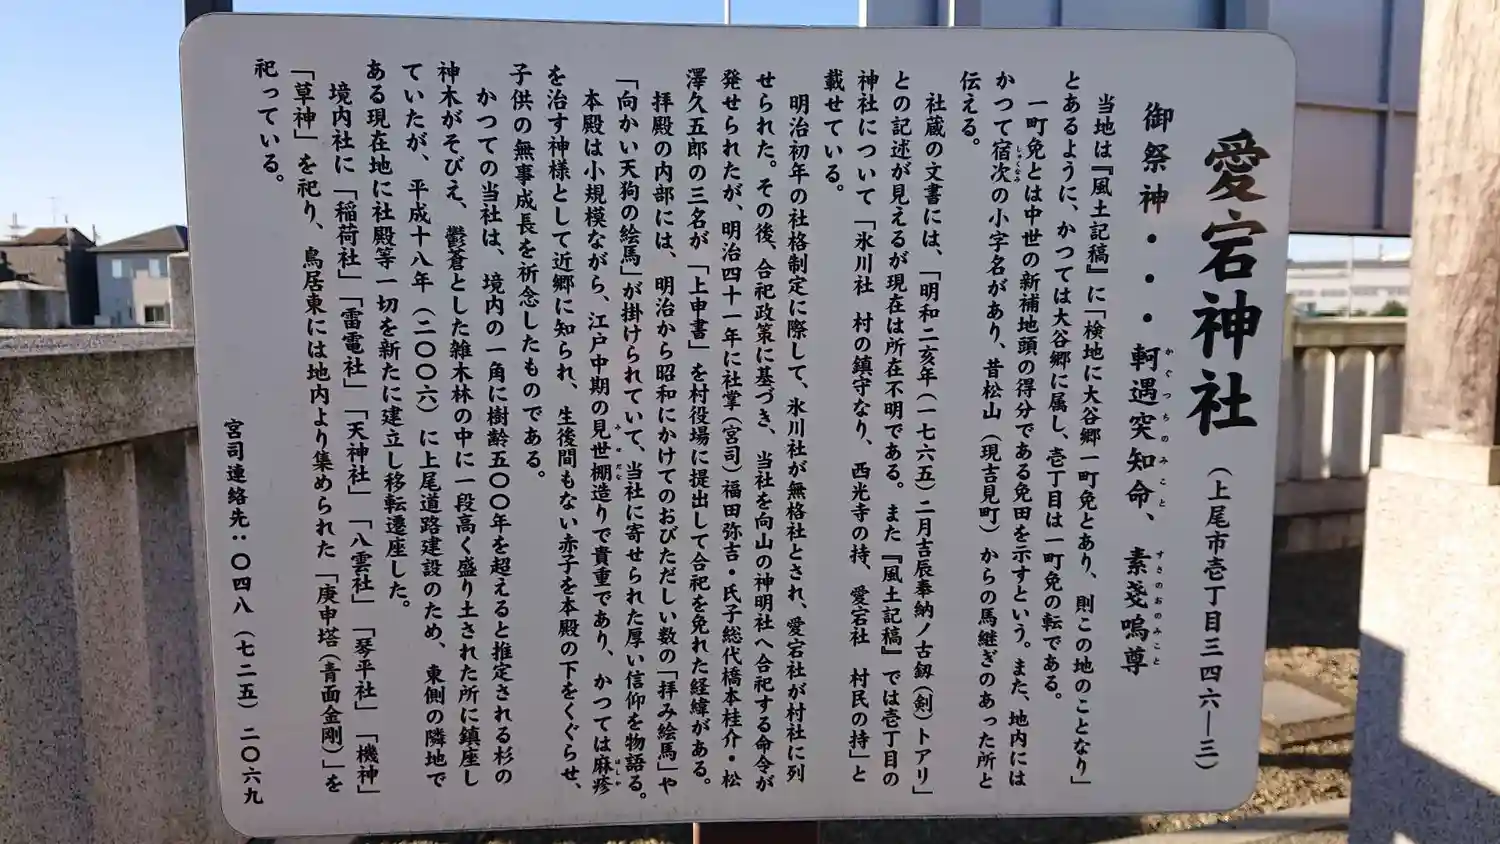 愛宕神社 (上尾市壱丁目三四六―三)
御祭神・・・軻遇突知命、素戔嗚尊
かぐつちのみこと すさのおのみこと
当地は『風土記稿』に「検地に大谷郷一町免とあり、則この地のことなり」
とあるように、かつては大谷郷に属し、壱丁目は一町免の転である。
一町免とは中世の新補地頭の得分である免田を示すという。また、地内には
かつて宿次の小字名があり、昔松山(現吉見町)からの馬継ぎのあった所と
しゅくなみ
伝える。
社蔵の文書には、「明和二亥年(一七六五)二月吉辰奉納ノ古釼(剣)トアリ」
との記述が見えるが現在は所在不明である。また『風土記稿』では壱丁目の
神社について「氷川社 村の鎮守なり、西光寺の持、愛宕社 村民の持」と
載せている。
明治初年の社格制定に際して、氷川社が無格社とされ、愛宕社が村社に列
せられた。その後、合祀政策に基づき、当社を向山の神明社へ合祀する命令が
発せられたが、明治四十一年に社掌(宮司)福田弥吉・氏子総代橋本桂介・松
澤久五郎の三名が「上申書」を村役場に提出して合祀を免れた経緯がある。
拝殿の内部には、明治から昭和にかけてのおびただしい数の「拝み絵馬」や
「向かい天狗の絵馬」が掛けられていて、当社に寄せられた厚い信仰を物語る。
本殿は小規模ながら、江戸中期の見世棚造りで貴重であり、かつては麻疹
みせだな はしか
を治す神様として近郷に知られ、生後間もない赤子を本殿の下をくぐらせ、
子供の無事成長を祈念したものである。
かつての当社は、境内の一角に樹齢五〇〇年を超えると推定される杉の
神木がそびえ、鬱蒼とした雑木林の中に一段高く盛り土された所に鎮座し
ていたが、平成十八年(二〇〇六)に上尾道路建設のため、東側の隣地で
ある現在地に社殿等一切を新たに建立し移転遷座した。
境内社に「稲荷社」「雷電社」「天神社」「八雲社」「琴平社」「機神」
「草神」を祀り、鳥居東には地内より集められた「庚申塔(青面金剛)」を
祀っている。
宮司連絡先:〇四八(七二五)二〇六九